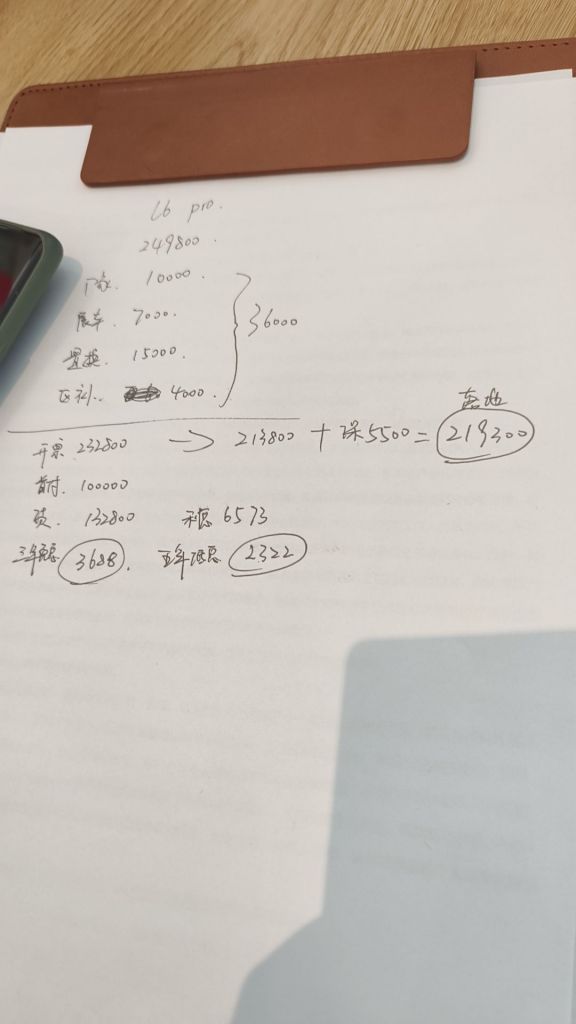 L6 pro.
249800.
厂家. 10000.
展车. 7000.
置换. 15000.
区补. 4000.
36000
开票 232800 → 213800 + 保5500 = 219300
落地
首付. 100000
贷. 132800 利息 6573
三年 3688. 五年 2322